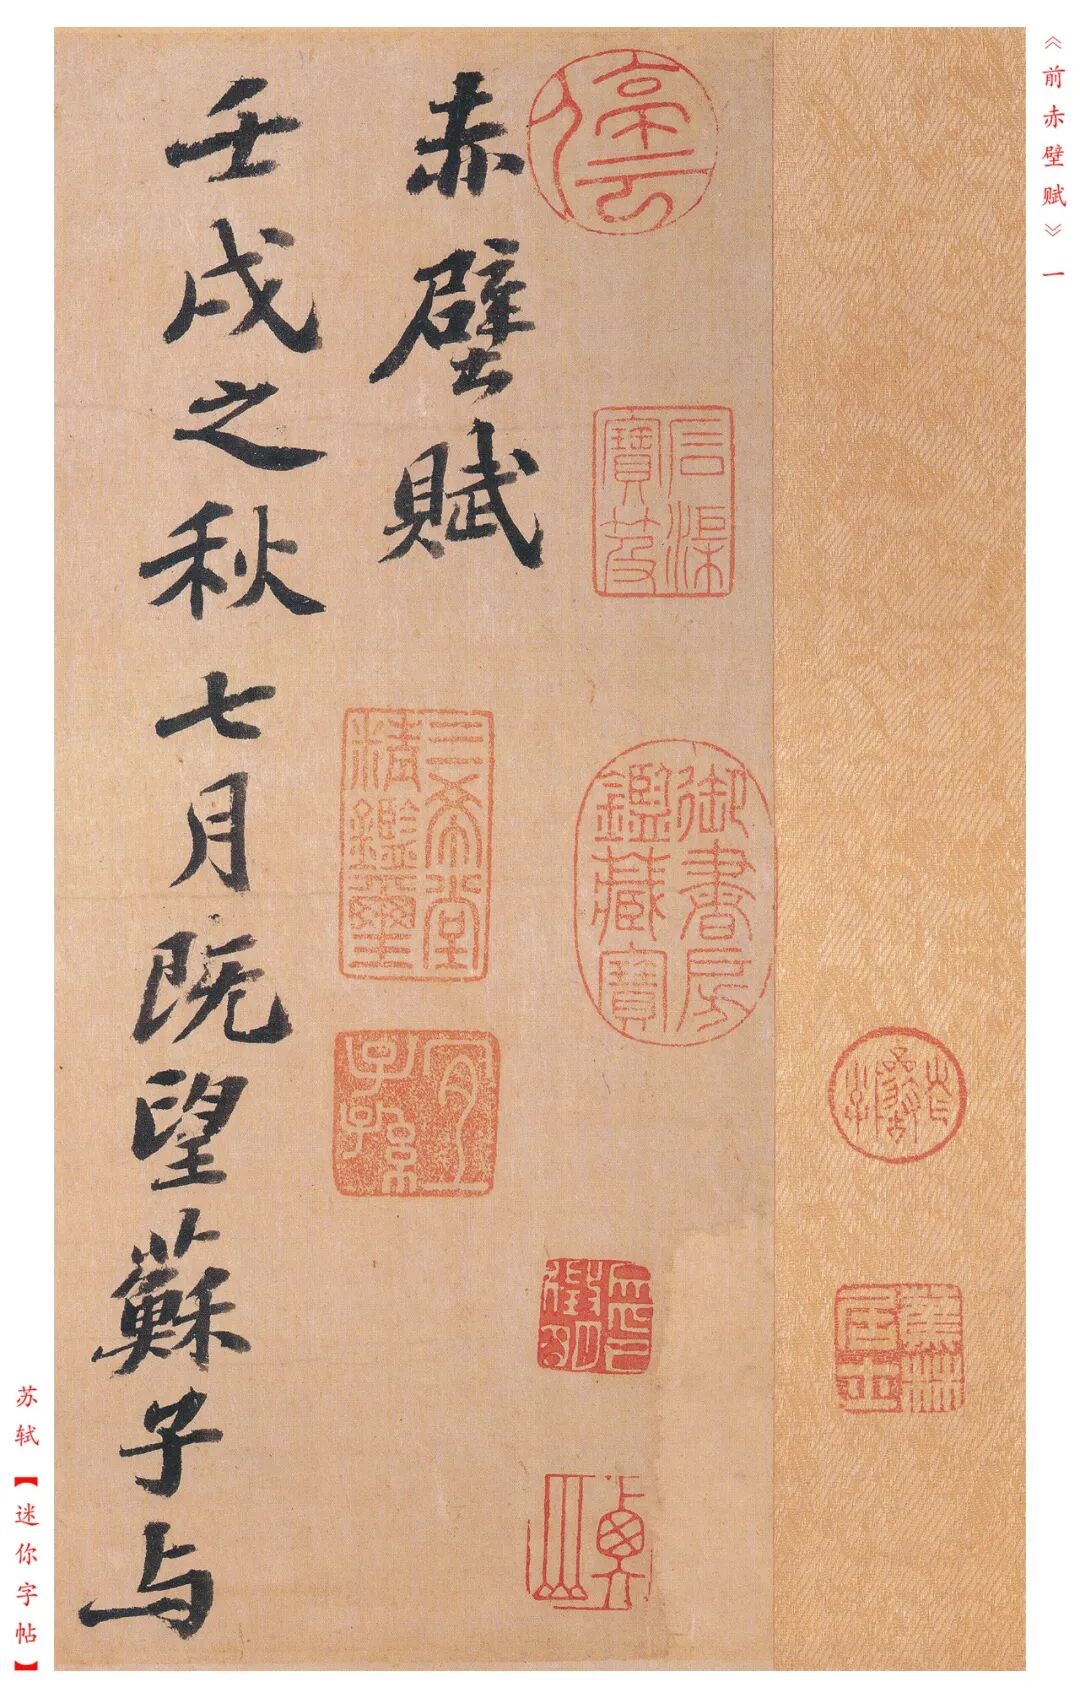 《前赤壁赋》一
赤壁賦
壬戌之秋七月既望蘇子与
石渠
寶笈
御書房
鑑藏寶
三希堂
精鑑璽
宜
子孫
蕉林
居士
苏轼【迷你字帖】